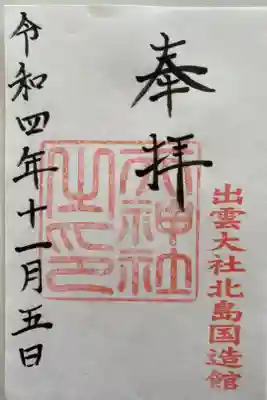 奉拝
出雲大社北島国造館
令和四年十一月五日